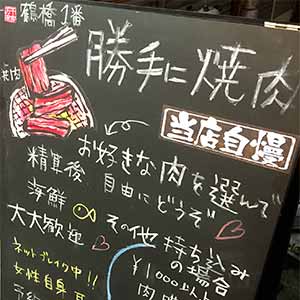 鶴橋1番
勝手に焼肉
当店自慢
お好きな肉を選んで
精算後
自由にどうぞ
海鮮
その他
持ち込み
の場合
大大歓迎
¥1000以
肉
ネットブレイク中!!
女性自身